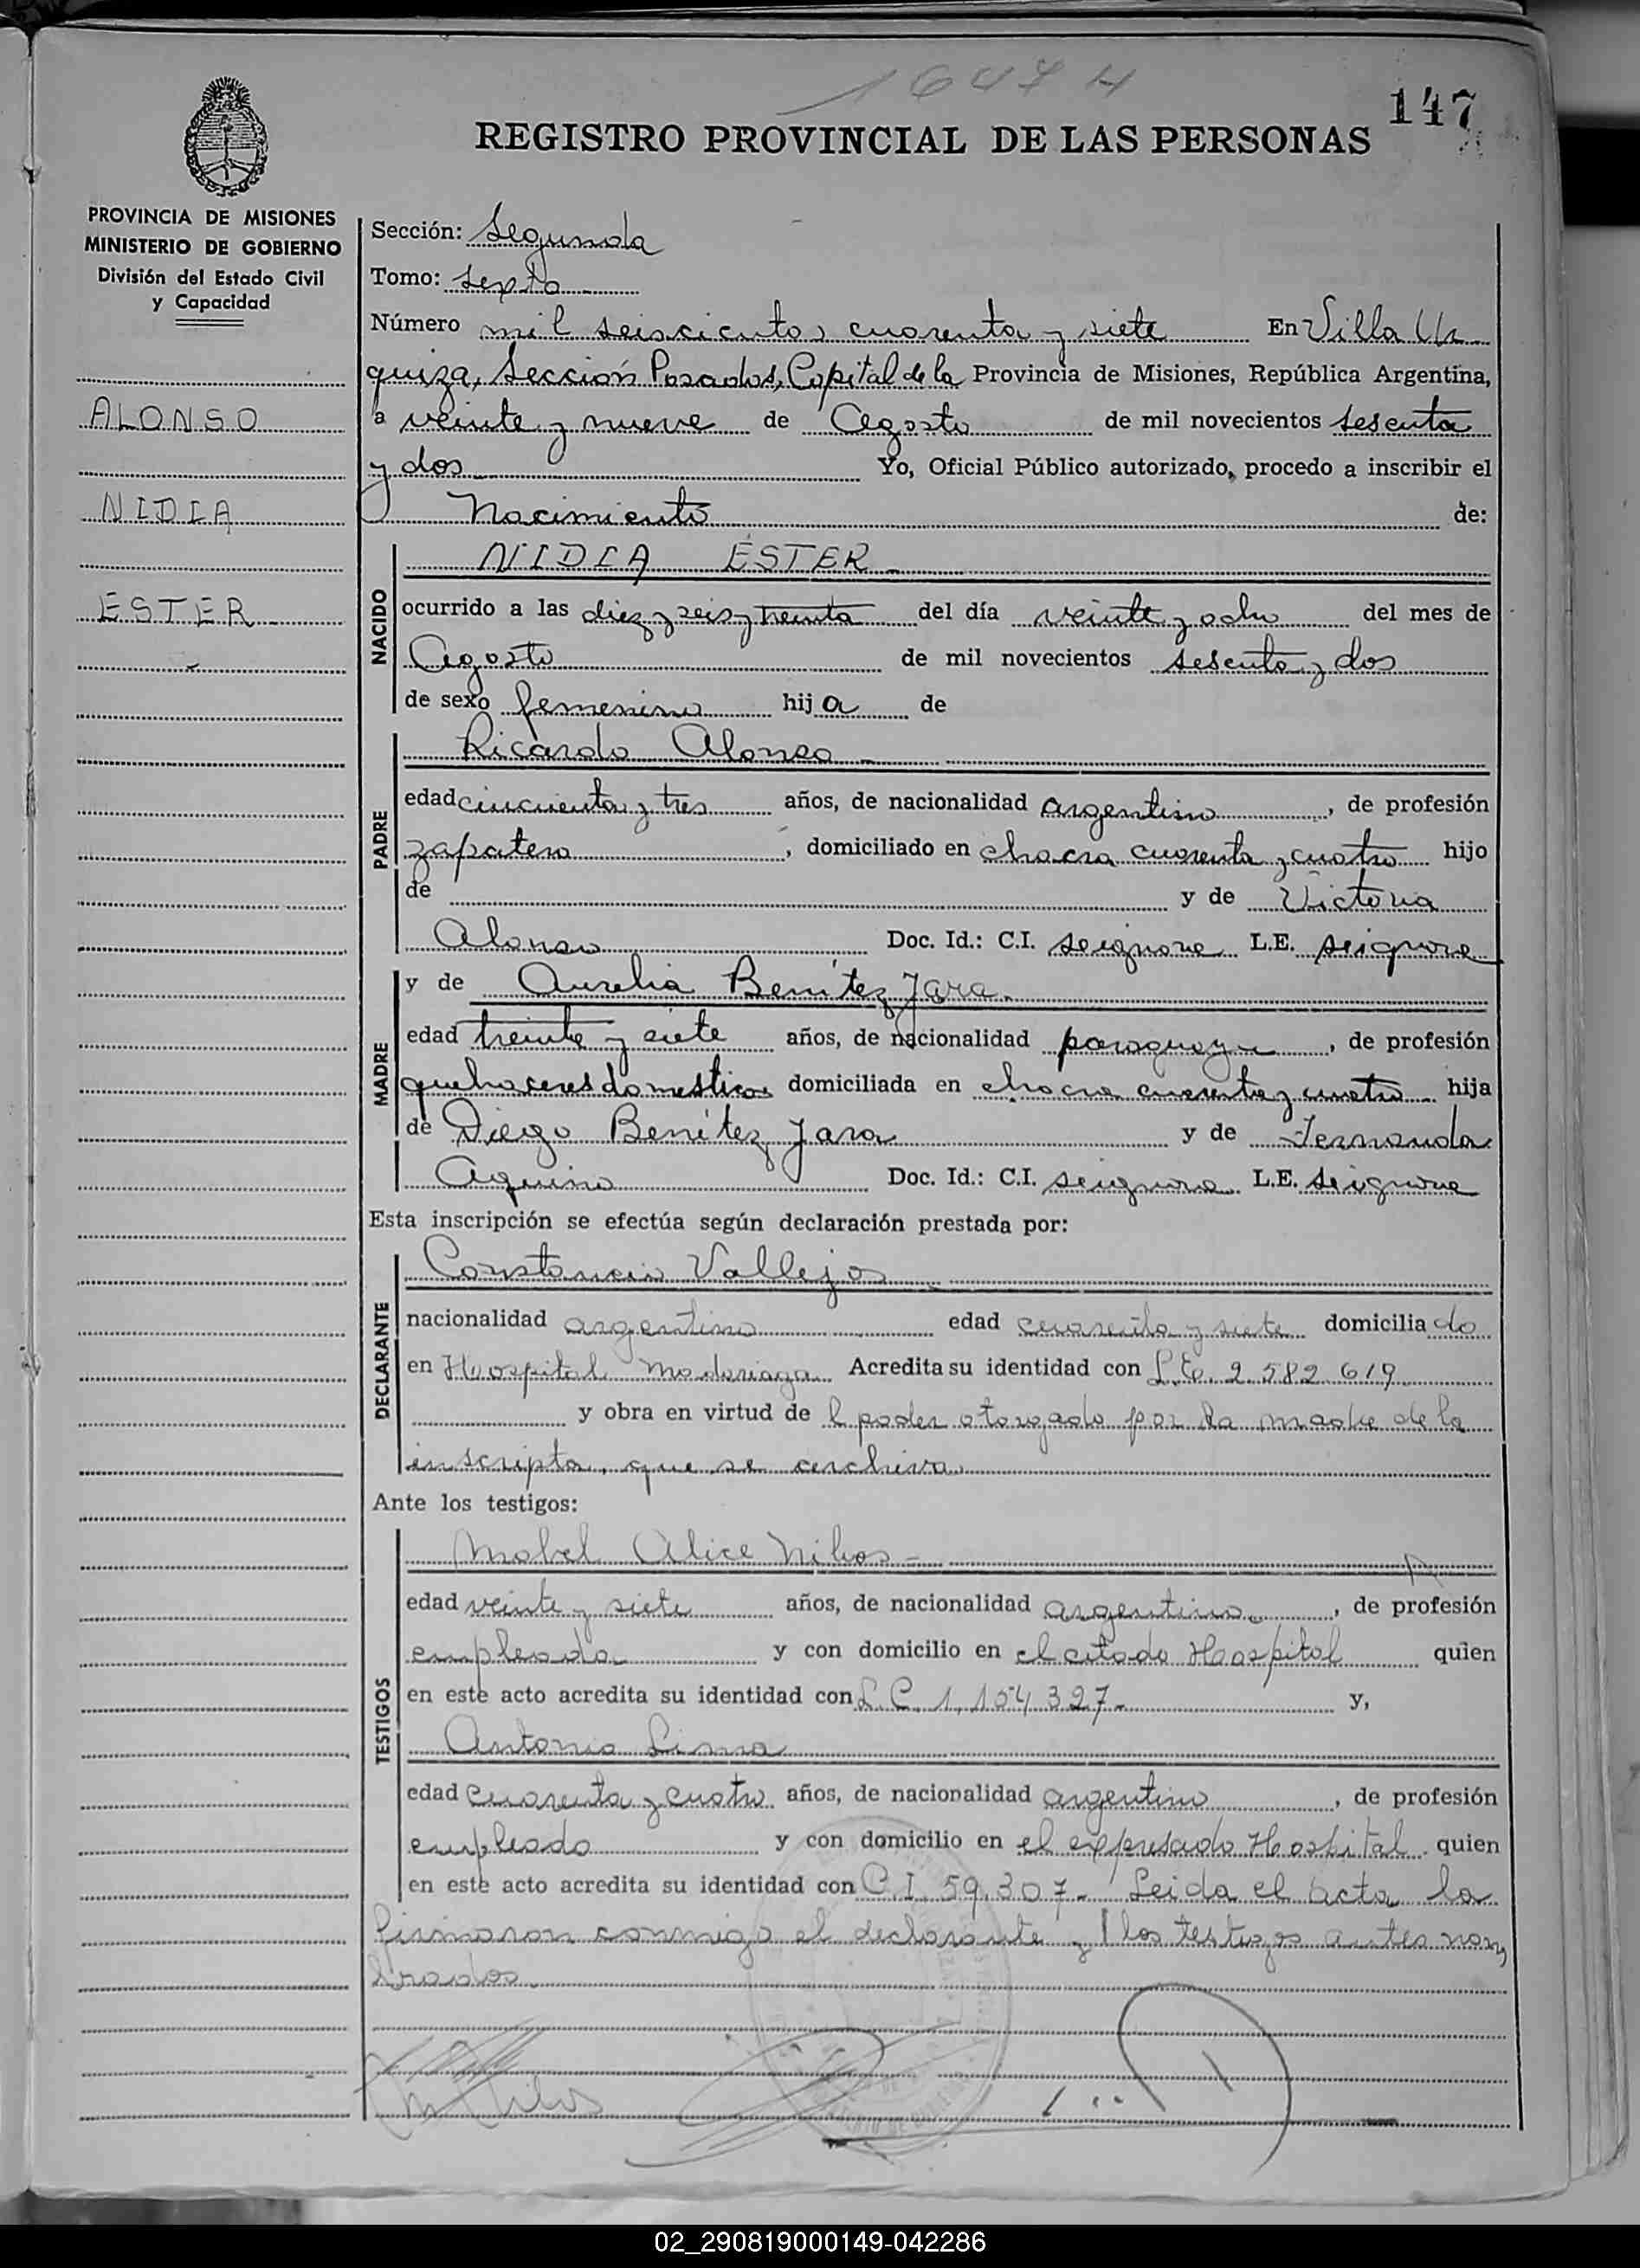 1647 H
147
REGISTRO PROVINCIAL DE LAS PERSONAS
PROVINCIA DE MISIONES
MINISTERIO DE GOBIERNO
División del Estado Civil
y Capacidad
ALONSO
NIDIA
ESTER
Sección: Segunda
Tomo: sexto
Número mil seiscientos cuarenta y siete En Villa Ur
quiza, Sección Posadas, Capital de la Provincia de Misiones, República Argentina,
a veinte y nueve de Agosto de mil novecientos sesenta
y dos Yo, Oficial Público autorizado, procedo a inscribir el
Nacimiento de:
NACIDO
NIDIA ESTER
ocurrido a las diez y seis y treinta del día veinte y ocho del mes de
Agosto de mil novecientos sesenta y dos
de sexo femenino hija de
PADRE
Ricardo Alonso
edad cincuenta y tres años, de nacionalidad argentino, de profesión
zapatero, domiciliado en chacra cuarenta y cuatro hijo
de y de Victoria
Alonso Doc. Id.: C.I. se ignora L.E. se ignora
MADRE
y de Aurelia Benítez Jara
edad treinta y siete años, de nacionalidad paraguaya, de profesión
quehaceres domesticos domiciliada en chacra cuarenta y cuatro hija
de Diego Benítez Jara y de Fernanda
Aquino Doc. Id.: C.I. se ignora L.E. se ignora
Esta inscripción se efectúa según declaración prestada por:
DECLARANTE
Constancio Vallejos
nacionalidad argentino edad cuarenta y siete domiciliado
en Hospital Madariaga Acredita su identidad con L.E. 2.582.619
y obra en virtud de l poder otorgado por la madre de la
inscripta, que se archiva.
Ante los testigos:
TESTIGOS
Mabel Alice
edad veinte y siete años, de nacionalidad argentina, de profesión
empleada y con domicilio en el citado Hospital quien
en este acto acredita su identidad con L.C. 1.104.327- y,
Antonio Lima
edad cuarenta y cuatro años, de nacionalidad argentino, de profesión
empleado y con domicilio en el expresado Hospital quien
en este acto acredita su identidad con C.I. 59.307- Leida el acta la
firmaron conmigo el declarante y los testigos antes nom
brados
02_290819000149-042286